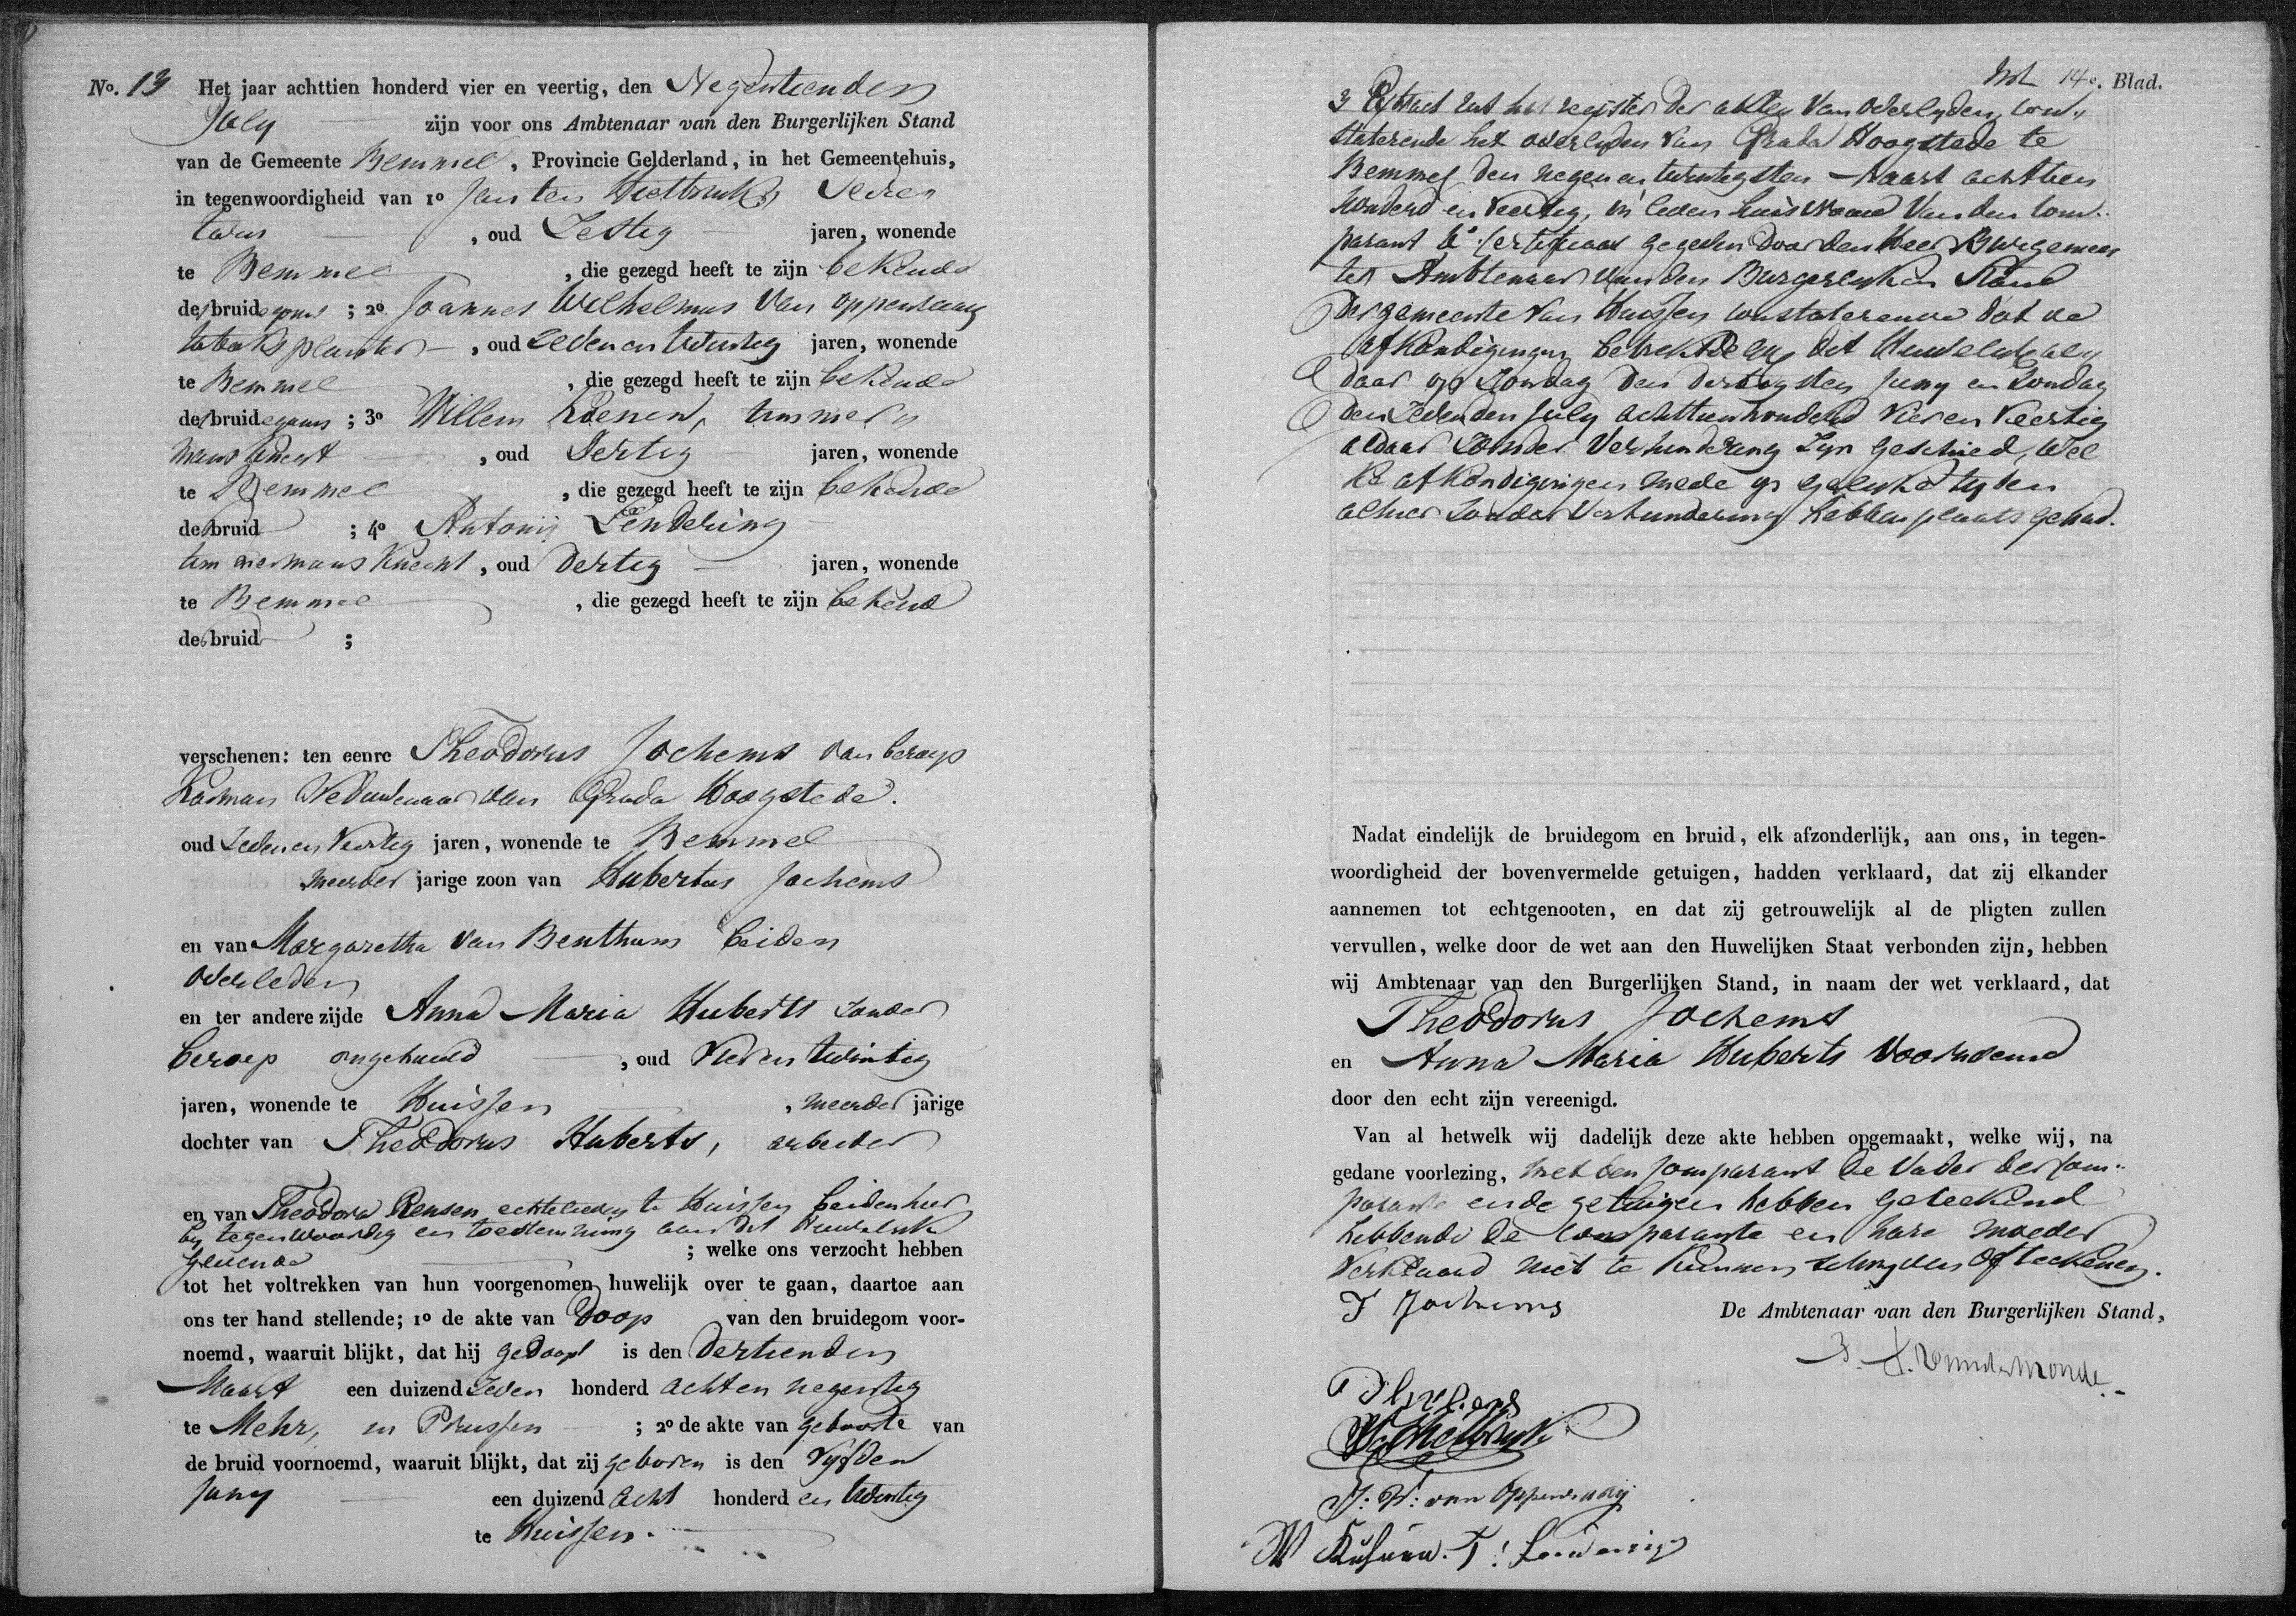 No. 13 Het jaar achttien honderd vier en veertig, den Negentienden
July zijn voor ons Ambtenaar van den Burgerlijken Stand
van de Gemeente Bemmel, Provincie Gelderland, in het Gemeentehuis,
in tegenwoordigheid van 1o Jan ten
, oud Zestig jaren, wonende
te Bemmel , die gezegd heeft te zijn bekende
des bruidegoms ; 2o Joannes Wilhelmus van Oppenraaij
tabaksplanter , oud Zeven en twintig jaren, wonende
te Bemmel , die gezegd heeft te zijn bekende
des bruidegoms ; 3o Willem timmer
mans knecht , oud Dertig jaren, wonende
te Bemmel , die gezegd heeft te zijn bekende
der bruid ; 4o Antonij Lendering
timmermans Knecht , oud Dertig jaren, wonende
te Bemmel , die gezegd heeft te zijn bekend
der bruid ;
verschenen: ten eenre Theodorus Jochems van beroep
Weduwenaar van Grada Hoogstede.
oud Zeven en Veertig jaren, wonende te Bemmel
meerder jarige zoon van Hubertus Jochems
en van Margaretha van Benthum beiden
overleden
en ter andere zijde Anna Maria Huberts zonder
beroep ongehuwd , oud Vier en twintig
jaren, wonende te Huissen , meerder jarige
dochter van Theodorus Huberts, arbeider
en van Theodora Rensen echtelieden te Huissen beiden hier
bij tegenwoordig en toestemming aan dit Huwelijk
gevende ; welke ons verzocht hebben
tot het voltrekken van hun voorgenomen huwelijk over te gaan, daartoe aan
ons ter hand stellende; 1o de akte van Doop van den bruidegom voor-
noemd, waaruit blijkt, dat hij gedoopt is den Dertienden
Maart een duizend Zeven honderd acht en negentig
te Mehr, in Pruissen ; 2o de akte van geboorte van
de bruid voornoemd, waaruit blijkt, dat zij geboren is den Vijfden
Juny een duizend Acht honderd en twintig
te Huissen.
14e. Blad.
3 Extract uit het register der akten van overlyden, con„
staterende het overlyden van Grada Hoogstede te
Bemmel den negen en twintigsten Maart achttien
honderd en Veertig, in leven huisvrouw van den com„
parant 4o Certificaat gegeven door den Heer Burgemees
ter Ambtenaar van den Burgerlyken Stand
der gemeente van Huissen constaterende dat de
afkondigingen betrekkelyk dit Huwelyk al
daar op Zondag den dertigsten Juny en Zondag
den Zevenden July achttienhonderd Vier en Veertig
aldaar Zonder Verhindering Zyn geschied, Wel
ke afkondigingen mede op gelyke tyden
alhier Zonder Verhindering hebben plaats gehad.
Nadat eindelijk de bruidegom en bruid, elk afzonderlijk, aan ons, in tegen-
woordigheid der bovenvermelde getuigen, hadden verklaard, dat zij elkander
aannemen tot echtgenooten, en dat zij getrouwelijk al de pligten zullen
vervullen, welke door de wet aan den Huwelijken Staat verbonden zijn, hebben
wij Ambtenaar van den Burgerlijken Stand, in naam der wet verklaard, dat
Theodorus Jochems
en Anna Maria Huberts Voornoemd
door den echt zijn vereenigd.
Van al hetwelk wij dadelijk deze akte hebben opgemaakt, welke wij, na
gedane voorlezing, met den Comparant de Vader der Com„
parante en de getuigen hebben geteekend
hebbende de Comparante en hare moeder
Verklaard niet te kunnen schryven of teekenen.
T Jochems De Ambtenaar van den Burgerlijken Stand,
J: W: van Oppenraaij